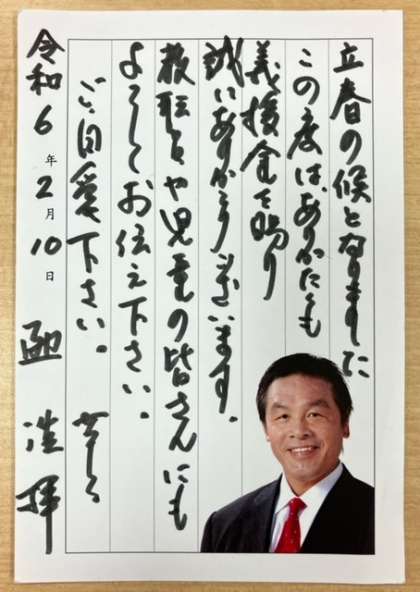 立春の候となりました
この度は、ありがたくも
義援金を賜り
誠にありがとうございます。
教職員や児童の皆さんにも
よろしくお伝え下さい。
ご自愛下さい。
令和6年2月10日
馳 浩 拝